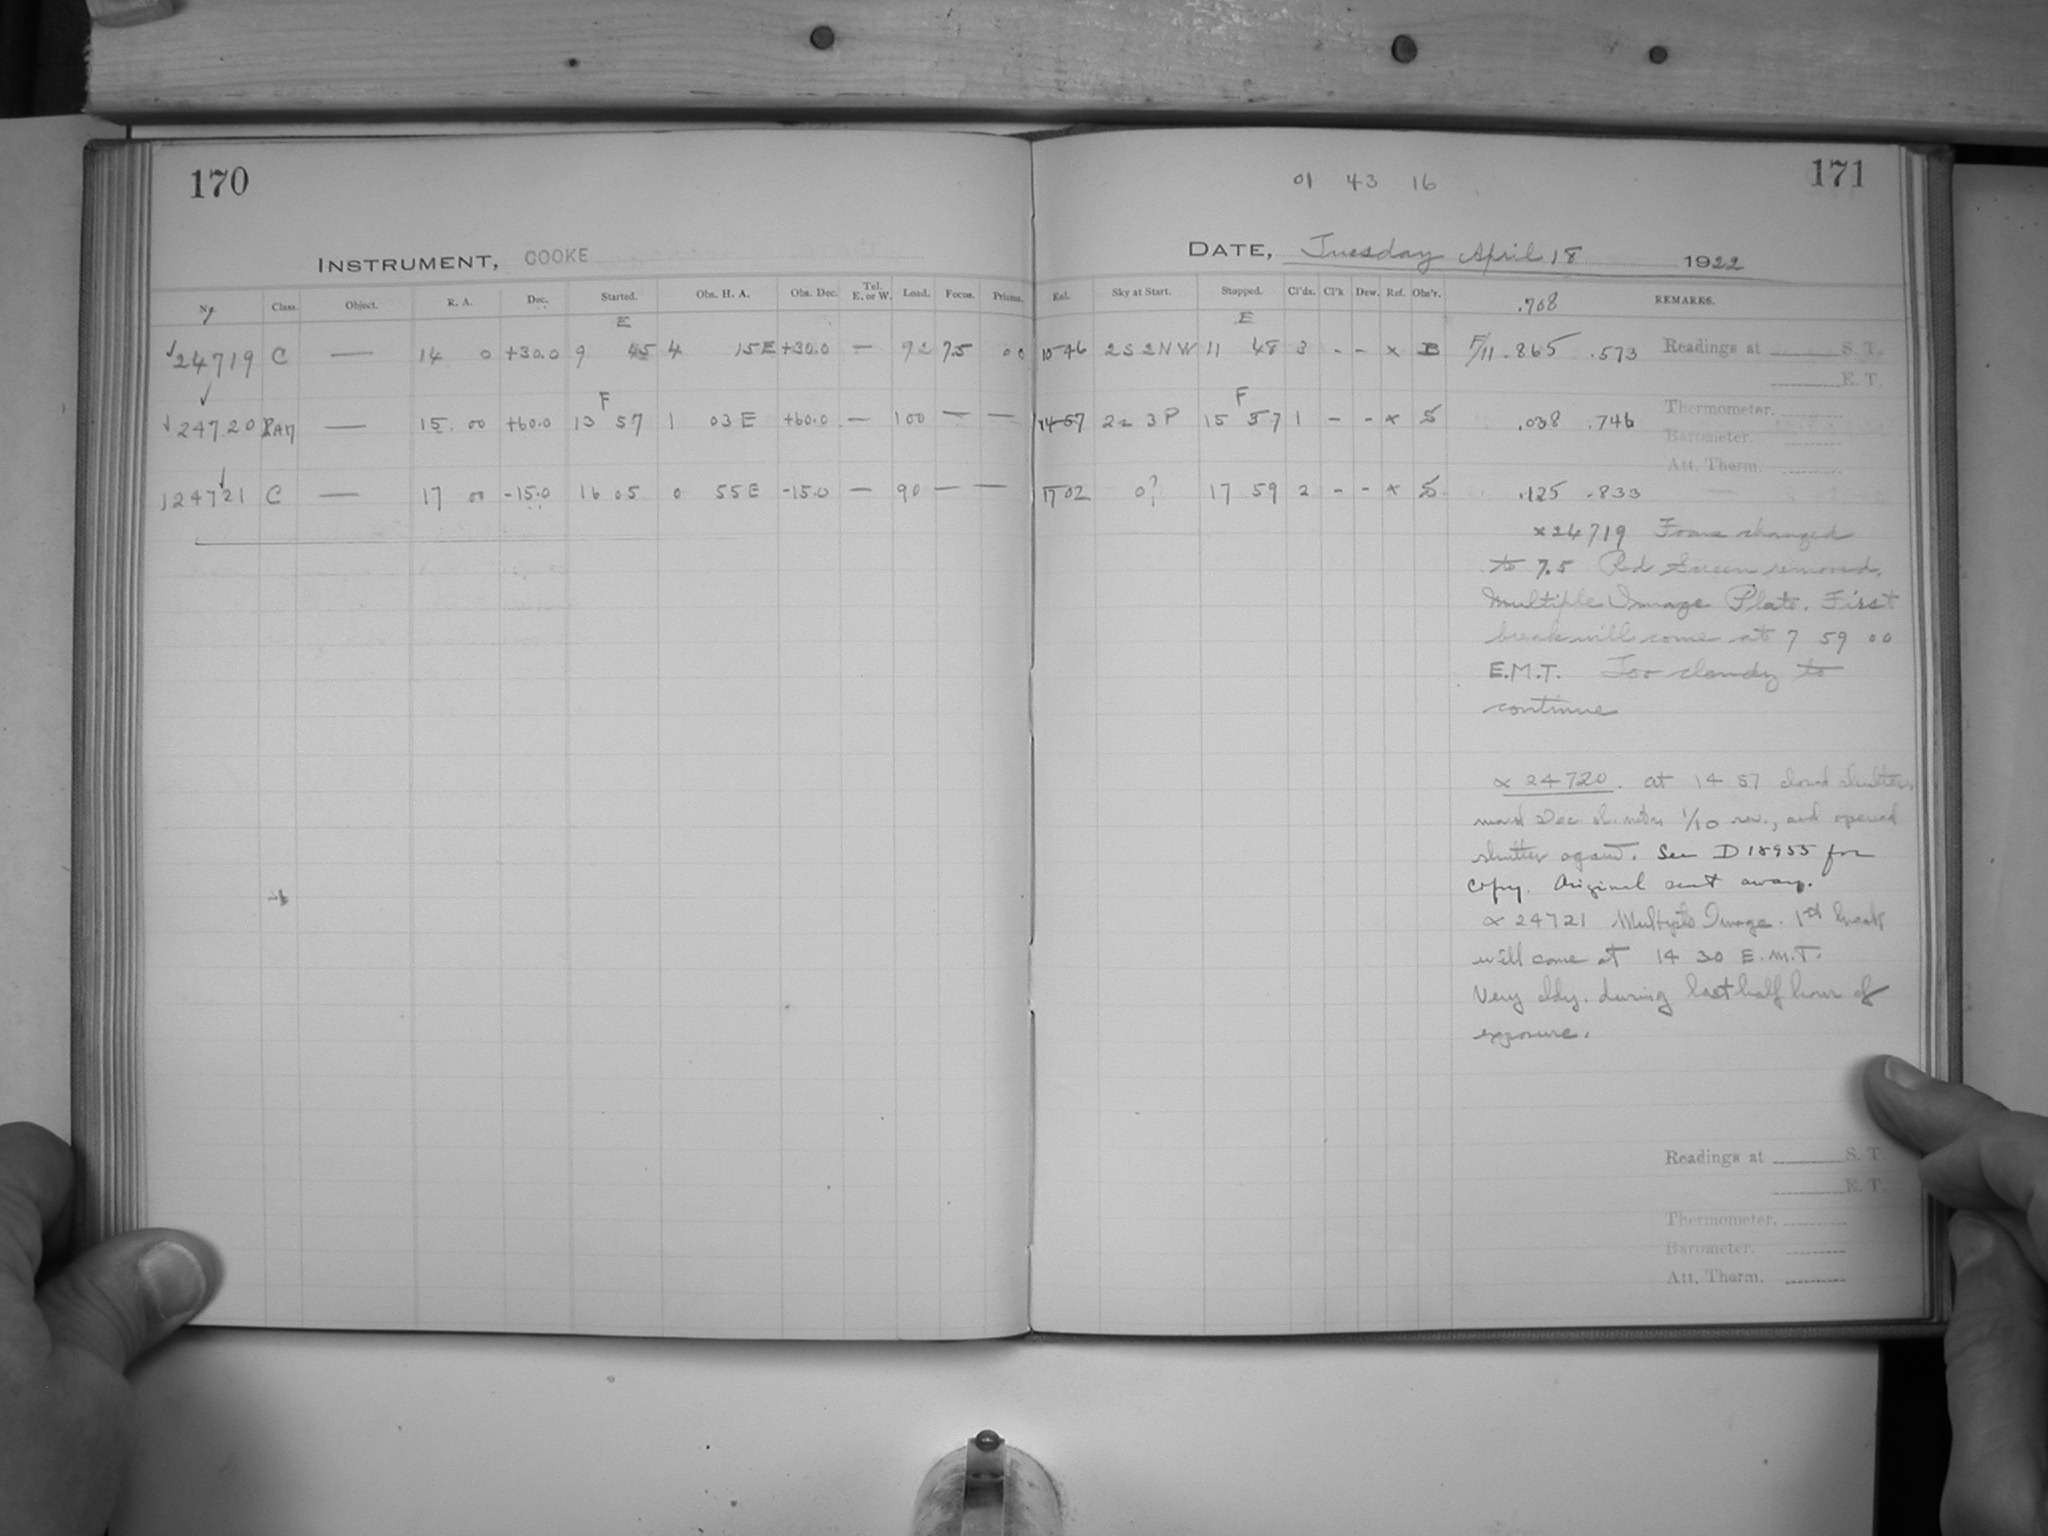 170
INSTRUMENT, COOKE
No. Class. Object. R. A. Dec. Started. Obs. H. A. Obs. Dec. Tel. E. or W. Load. Focus. Prisms.
E
24719 C — 14 0 +30.0 9 45 4 15E +30.0 — 92 75 00
F
24720 — 15. 00 +60.0 13 57 1 03 E +60.0 — 100 — —
24721 C — 17 00 -15.0 16 05 0 55E -15.0 — 90 — —
01 43 16
171
DATE, Tuesday April 18 1922
Sky at Start. Stopped. Cl'ds. Cl'k Dew. Ref. Obs'r. REMARKS.
.708
E
10 46 2S 2NW 11 48 3 - - x B F/11 .865 .573 Readings at S. T.
E. T.
F
14 57 3P 15 57 1 - - x S .038 .746 Thermometer.
Barometer.
Att. Therm.
17 02 0? 17 59 2 - - x S .125 .833
x24719 Focus changed
to 7.5 Red Screen removed.
Multiple Image Plate. First
break will come at 7 59 00
E.M.T. Too cloudy to
continue
x 24720. at 14 57 closed shutter,
1/10 rev., and opened
shutter again. See D 18955 for
copy. Original sent away.
x 24721 Multiple Image. 1st break
will come at 14 30 E.M.T.
Very cldy. during last half hour of
exposure.
Readings at S. T.
E. T.
Thermometer.
Barometer.
Att. Therm.